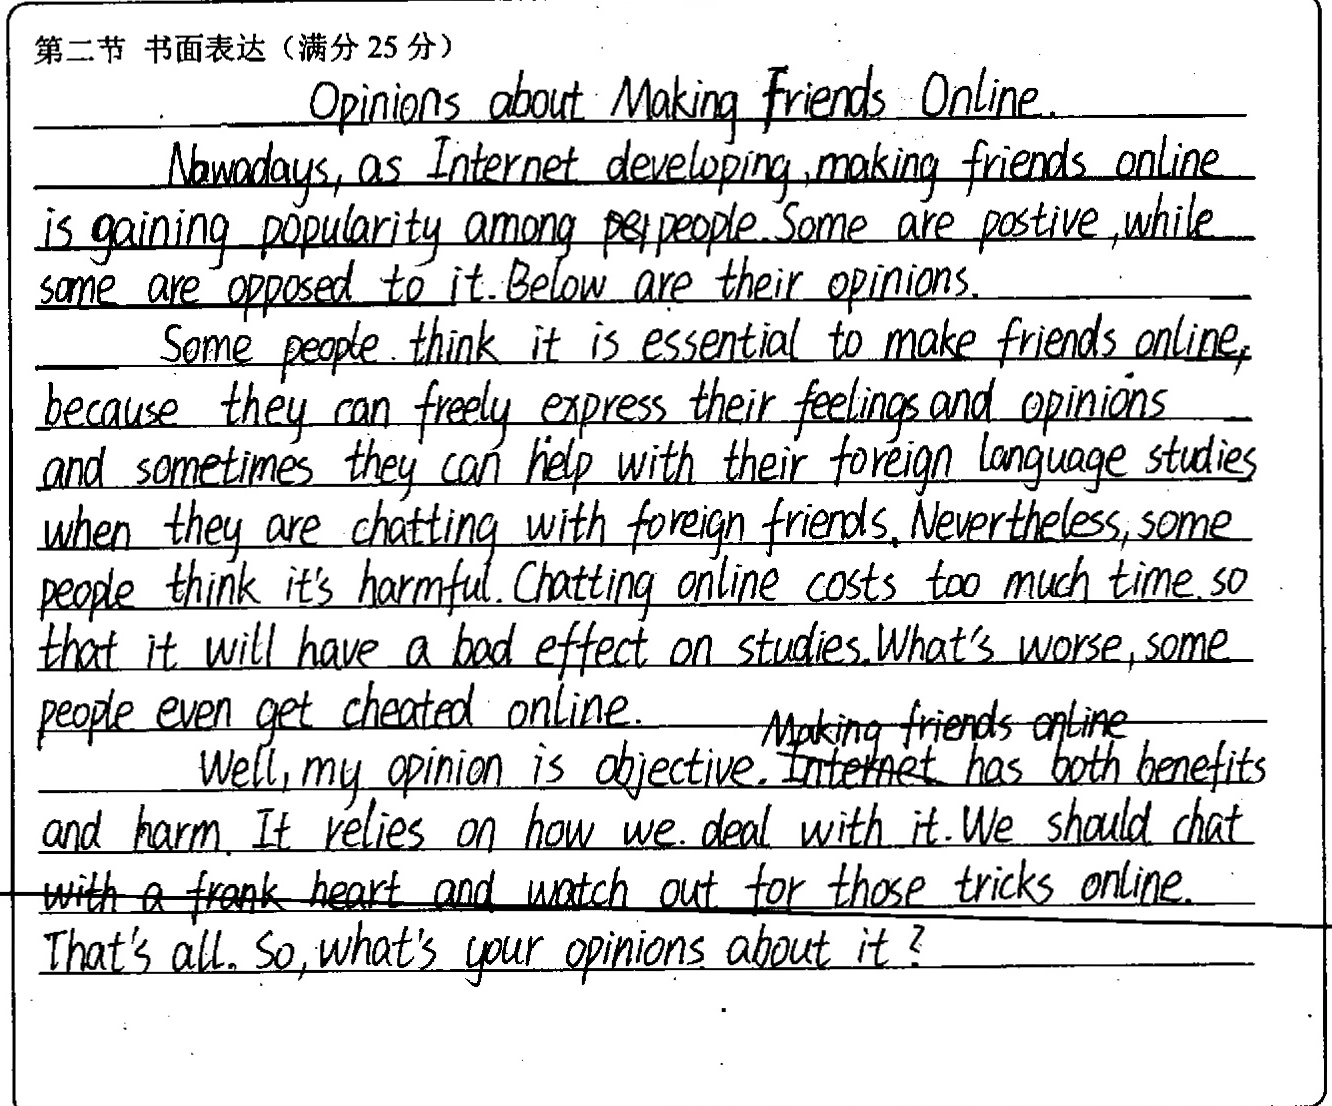 第二节 书面表达（满分 25 分）
Opinions about Making Friends Online.
Nowadays, as Internet developing, making friends online
is gaining popularity among people. Some are postive, while
some are opposed to it. Below are their opinions.
Some people think it is essential to make friends online,
because they can freely express their feelings and opinions
and sometimes they can help with their foreign language studies
when they are chatting with foreign friends. Nevertheless, some
people think it's harmful. Chatting online costs too much time so
that it will have a bad effect on studies. What's worse, some
people even get cheated online.
Well, my opinion is objective. Making friends online has both benefits
and harm. It relies on how we deal with it. We should chat
with a frank heart and watch out for those tricks online.
That's all. So, what's your opinions about it?